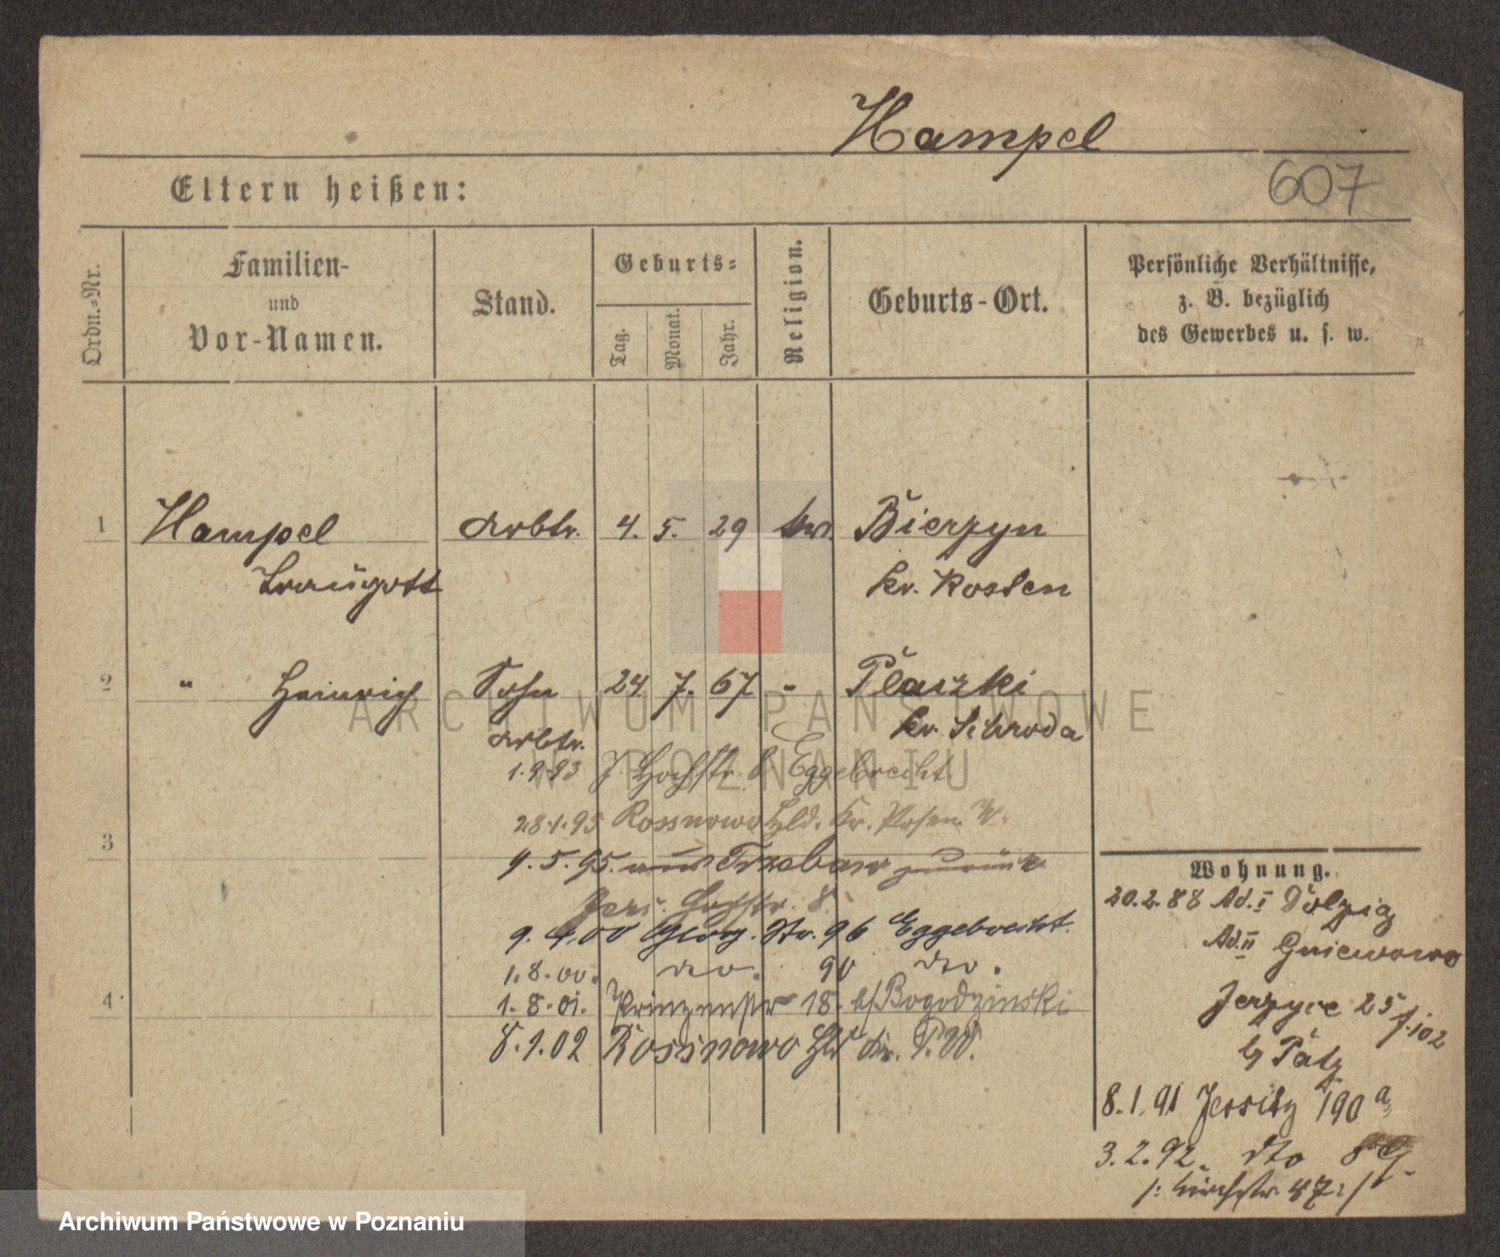 Hampel
607
Eltern heißen:
Ordn.=Nr.
Familien-
und
Vor-Namen.
Stand.
Geburts=
Tag.
Monat.
Jahr.
Religion.
Geburts-Ort.
Persönliche Verhältnisse,
z. B. bezüglich
des Gewerbes u. s. w.
1 Hampel Arbtr. 4. 5. 29 Bierzyn
Traugott kr. Kosten
2 " Heinrich Sohn 24 7. 67 - Plaszki
Arbtr. kr. Schroda
1.9.93 J. Hochstr. 8 Eggebrecht
28.1.95 Rossnowo Hld. Kr. Posen W.
3
9.5.95. aus Trzebaw zurück
Jers. Hochstr. 8
9.4.00 Georg. Str. 96 Eggebrecht.
1.8.00. dto. 90 dto.
4 1.8.01. Prinzenstr 18. b/Bogodzinski
8.1.02 Rossnowo Hld kr. P.W.
Wohnung.
20.2.88 Ad. I Dolzig
Ad. II Gniewowo
Jerzyce 25
b/ Pätz
8.1.91 Jersitz 190 a
3.2.92. dto
/: Kirchstr 47 :/
ARCHIWUM PAŃSTWOWE
W POZNANIU
Archiwum Państwowe w Poznaniu